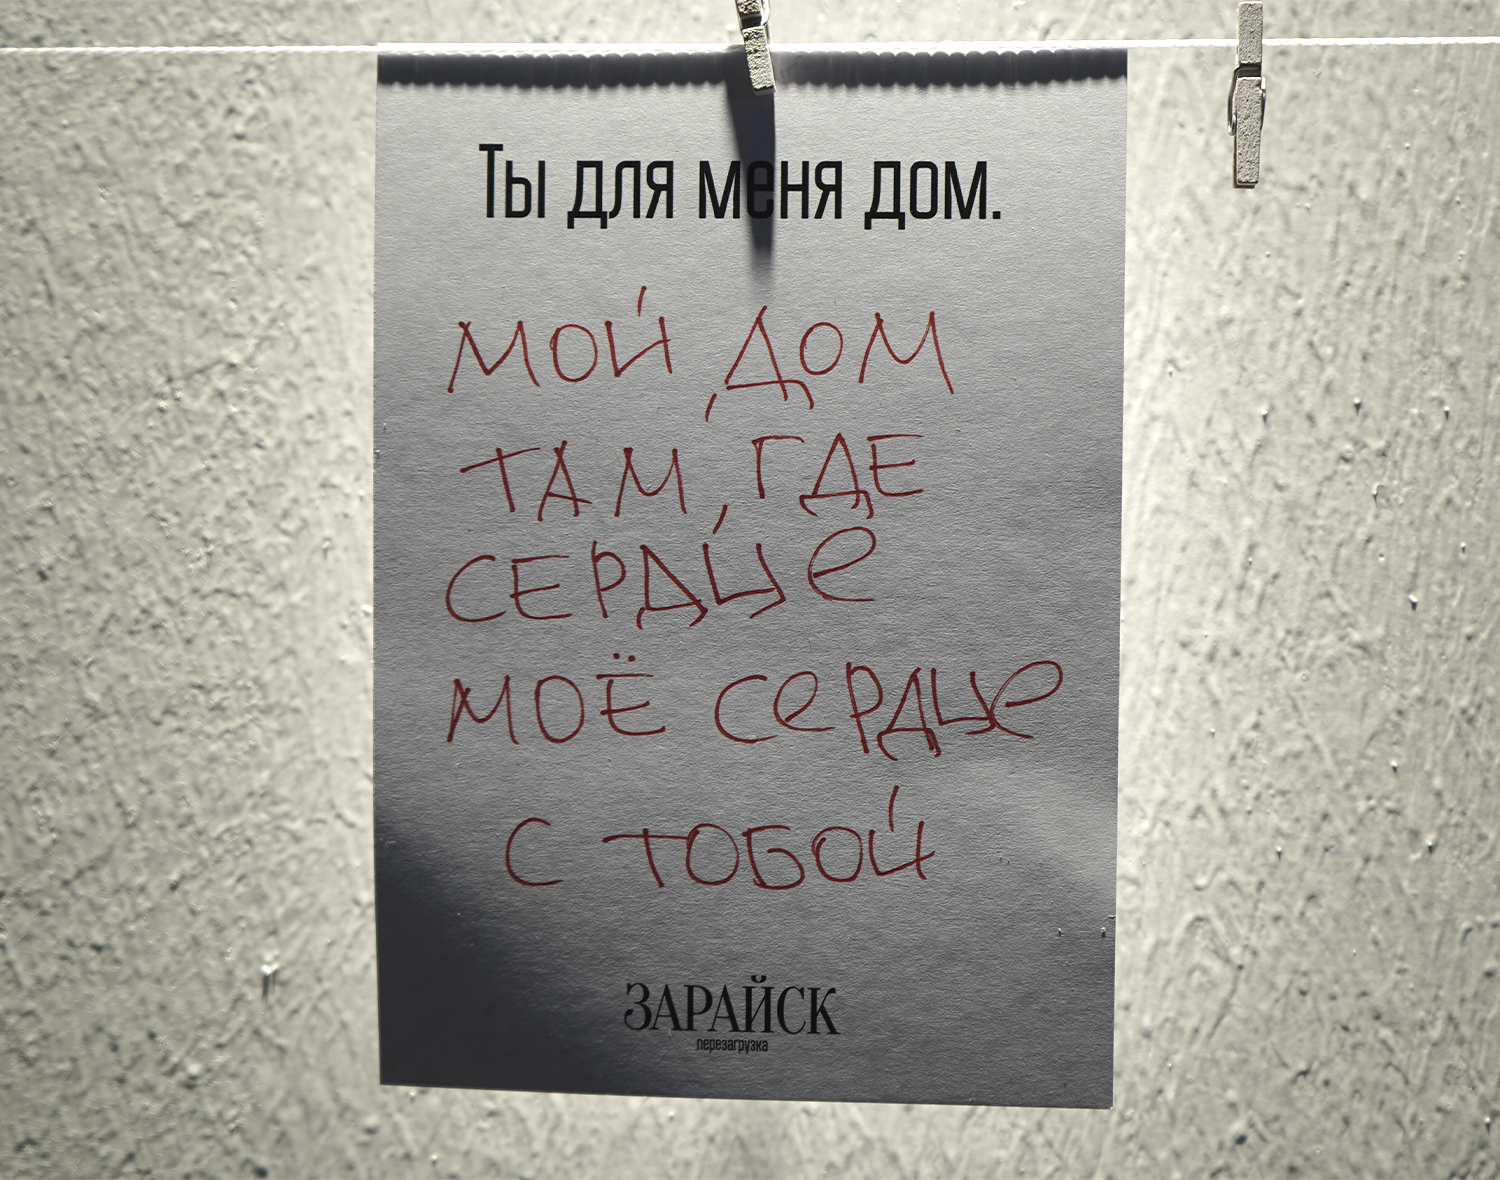 Ты для меня дом.
МОЙ ДОМ
ТАМ, ГДЕ
СЕРДЦЕ
МОЁ СЕРДЦЕ
С ТОБОЙ
ЗАРАЙСК
перезагрузка